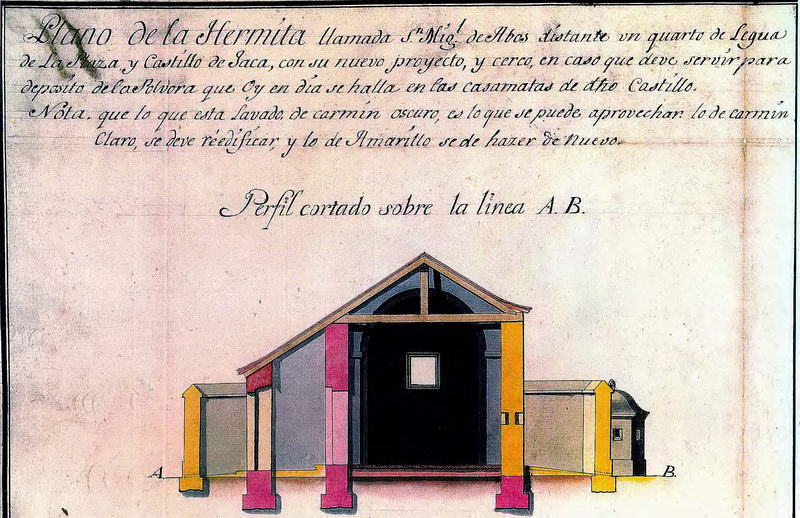 Plano de la Hermita llamada Sn. Migl. de Abos distante vn quarto de Legua
de La Plaza y Castillo de Jaca, con su nuevo proyecto, y cerco, en caso que deve servir para
deposito de la Polvora que Oy en dia se halla en las casamatas de dho Castillo.
Nota. que lo que esta Lavado de carmin oscuro, es lo que se puede aprovechar lo de carmin
Claro, se deve réedificar, y lo de Amarillo se de hazer de Nuevo.
Perfil cortado sobre la linea A. B.
A B.